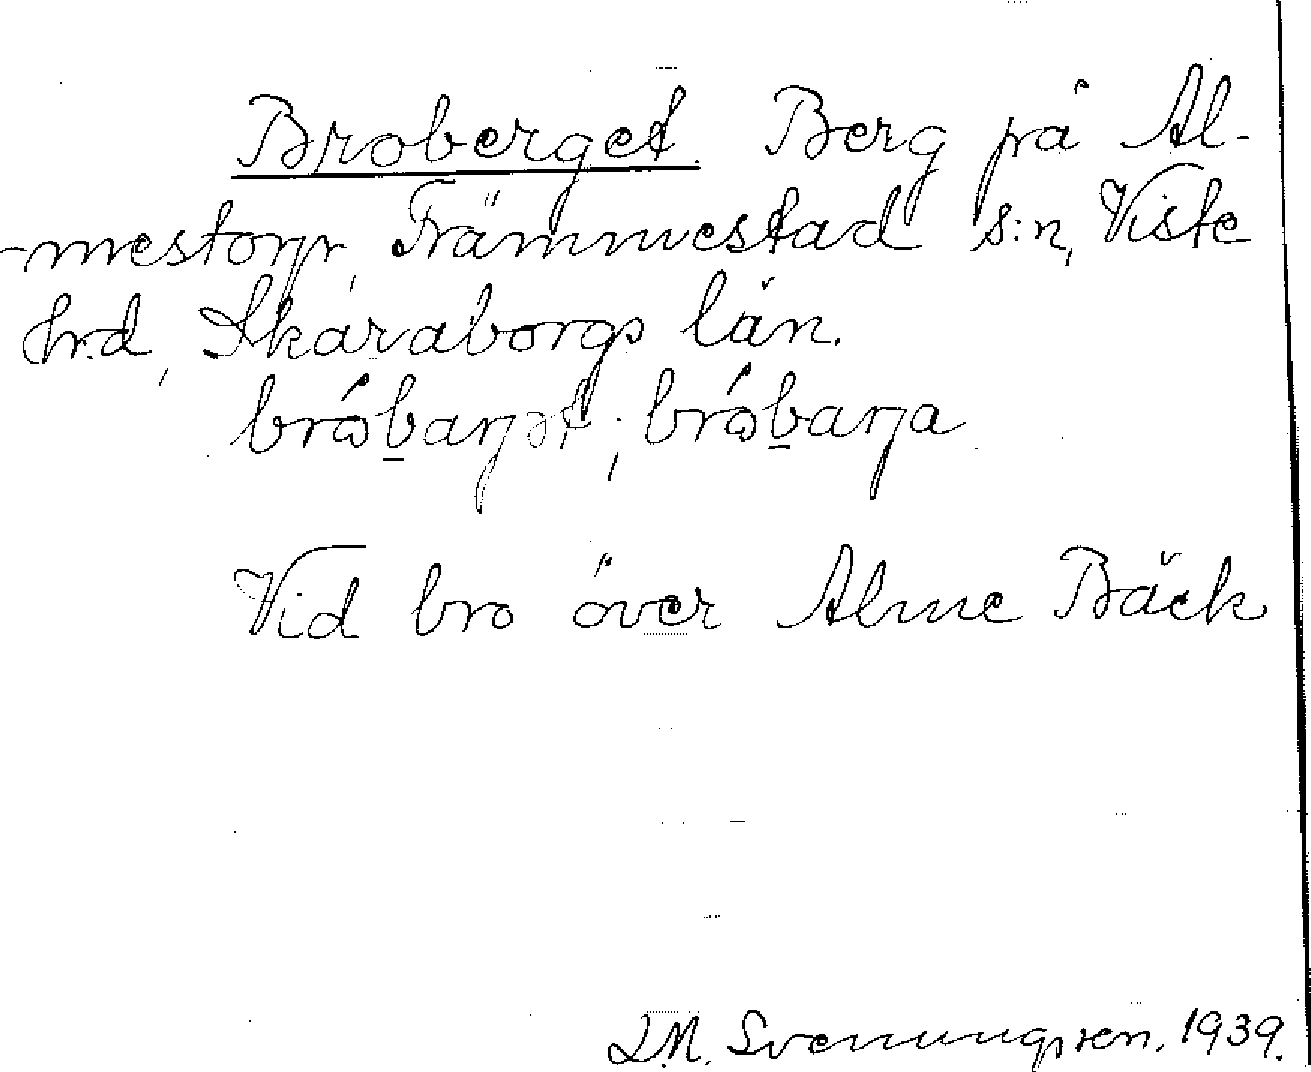 Broberget. Berg på Al-
-mestorp, Främmestad s:n, Viste
hrd, Skaraborgs län.
bróbaŋət; bróbaŋa
Vid bro över Alme Bäck
L.M. Svenungsson, 1939.